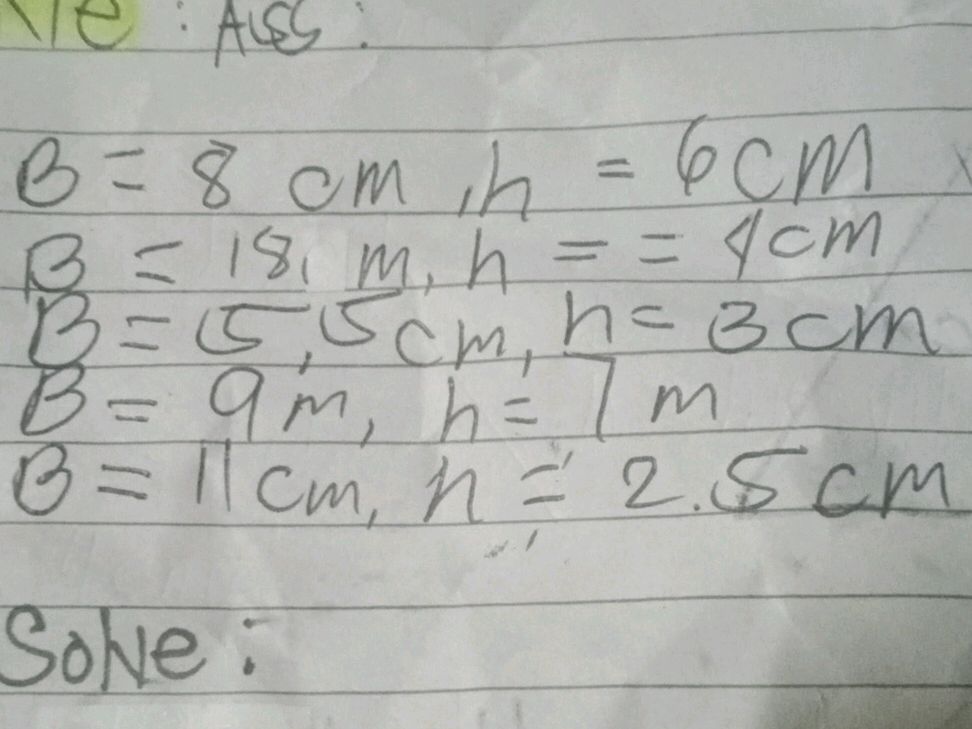 : Ass :
B = 8 cm, h = 6cm
B = 18, m, h = = 4cm
B = 5,5cm, h = 3cm
B = 9m, h = 7m
B = 11cm, h = 2.5cm
Solve :